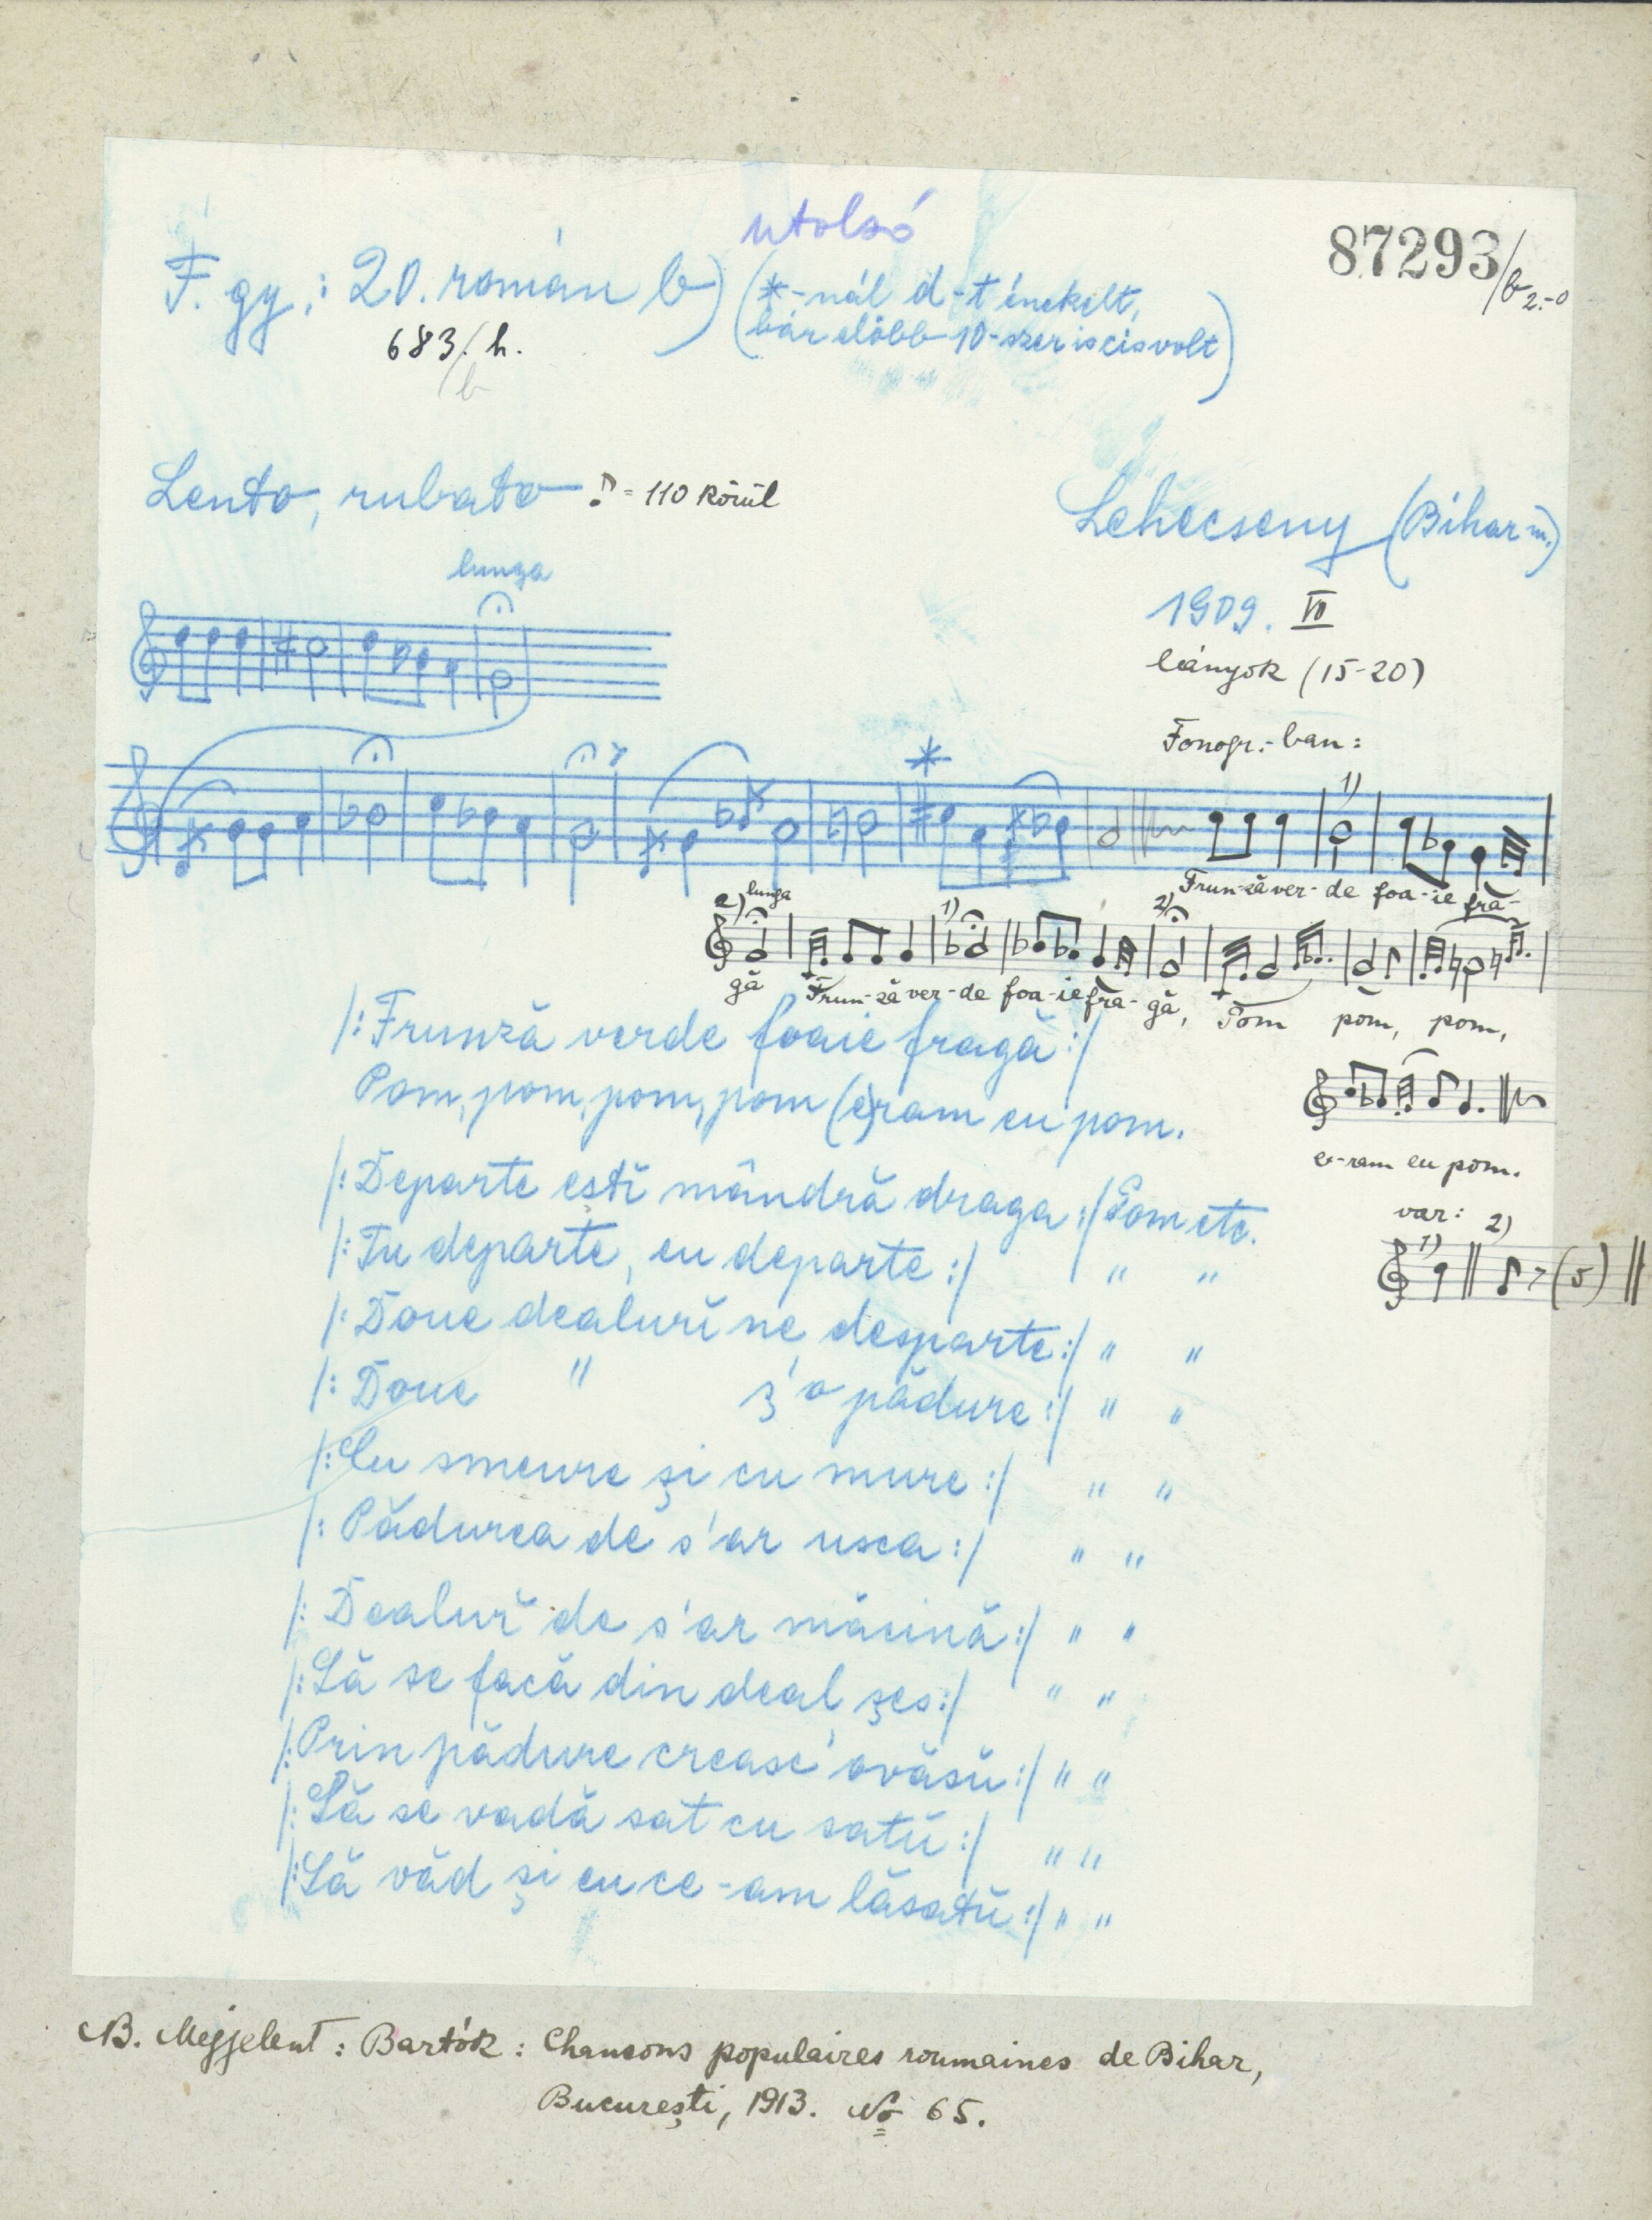 utolsó
87293/b 2.-0
F. gy.: 20. román b) (*-nál d-t énekelt,
bár előbb 10-szer is cis volt)
683/h.
b
Lento, rubato ♪ = 110 körül
Lehecseny (Bihar m.)
lunga
1909. VII
leányok (15-20)
Fonogr.-ban:
*
1)
Frun-ză ver-de foa-ie fra-
2) lunga 1) 2)
gă Frun-ză ver-de foa-ie fra-gă, Pom pom, pom,
|: Frunză verde foaie fragă :|
Pom, pom, pom, pom (e)ram eu pom.
e-ram eu pom.
|: Departe eștĭ mândră draga :| Pom etc.
var: 2)
1)
|: Tu departe, eu departe :| " "
|: Doue dealurĭ ne desparte :| " "
|: Doue " ș'o pădure :| " "
|: Cu smeure și cu mure :| " "
|: Pădurea de s'ar usca :| " "
|: Dealur̆ de s'ar măcină :| " "
|: Să se facă din deal șes :| " "
|: Prin pădure creasc' ovăsŭ :| " "
|: Să se vadă sat cu satŭ :| " "
|: Să văd și eu ce-am lăsatŭ :| " "
NB. Megjelent: Bartók: Chansons populaires roumaines de Bihar,
București, 1913. No 65.